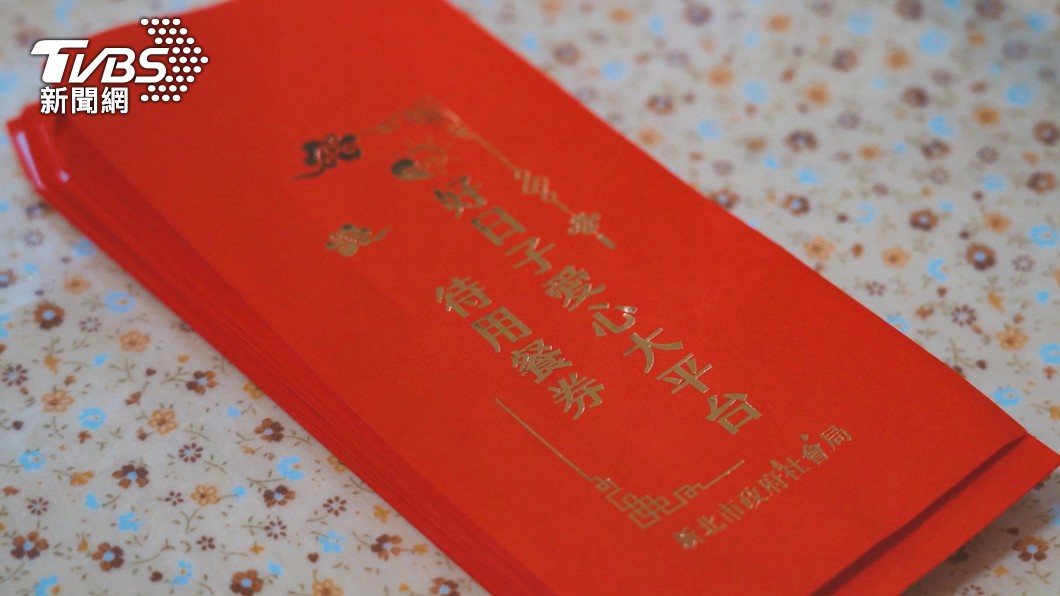 TVBS
新聞網
好日子愛心大平台
待用餐券
新北市政府社會局